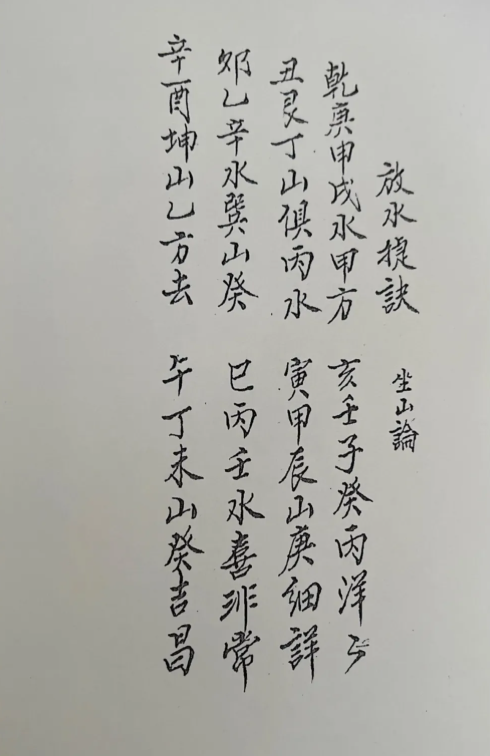 放水捷訣 坐山論
乾庚申戌水甲方 亥壬子癸丙洋洋
丑艮丁山俱丙水 寅甲辰山庚細詳
夘乙辛水巽山癸 巳丙壬水喜非常
辛酉坤山乙方去 午丁未山癸吉昌